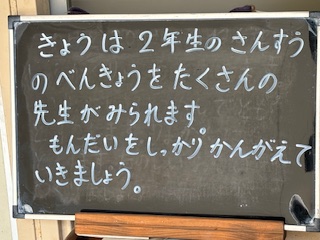 きょうは2年生のさんすう
のべんきょうをたくさんの
先生がみられます。
もんだいをしっかりかんがえて
いきましょう。